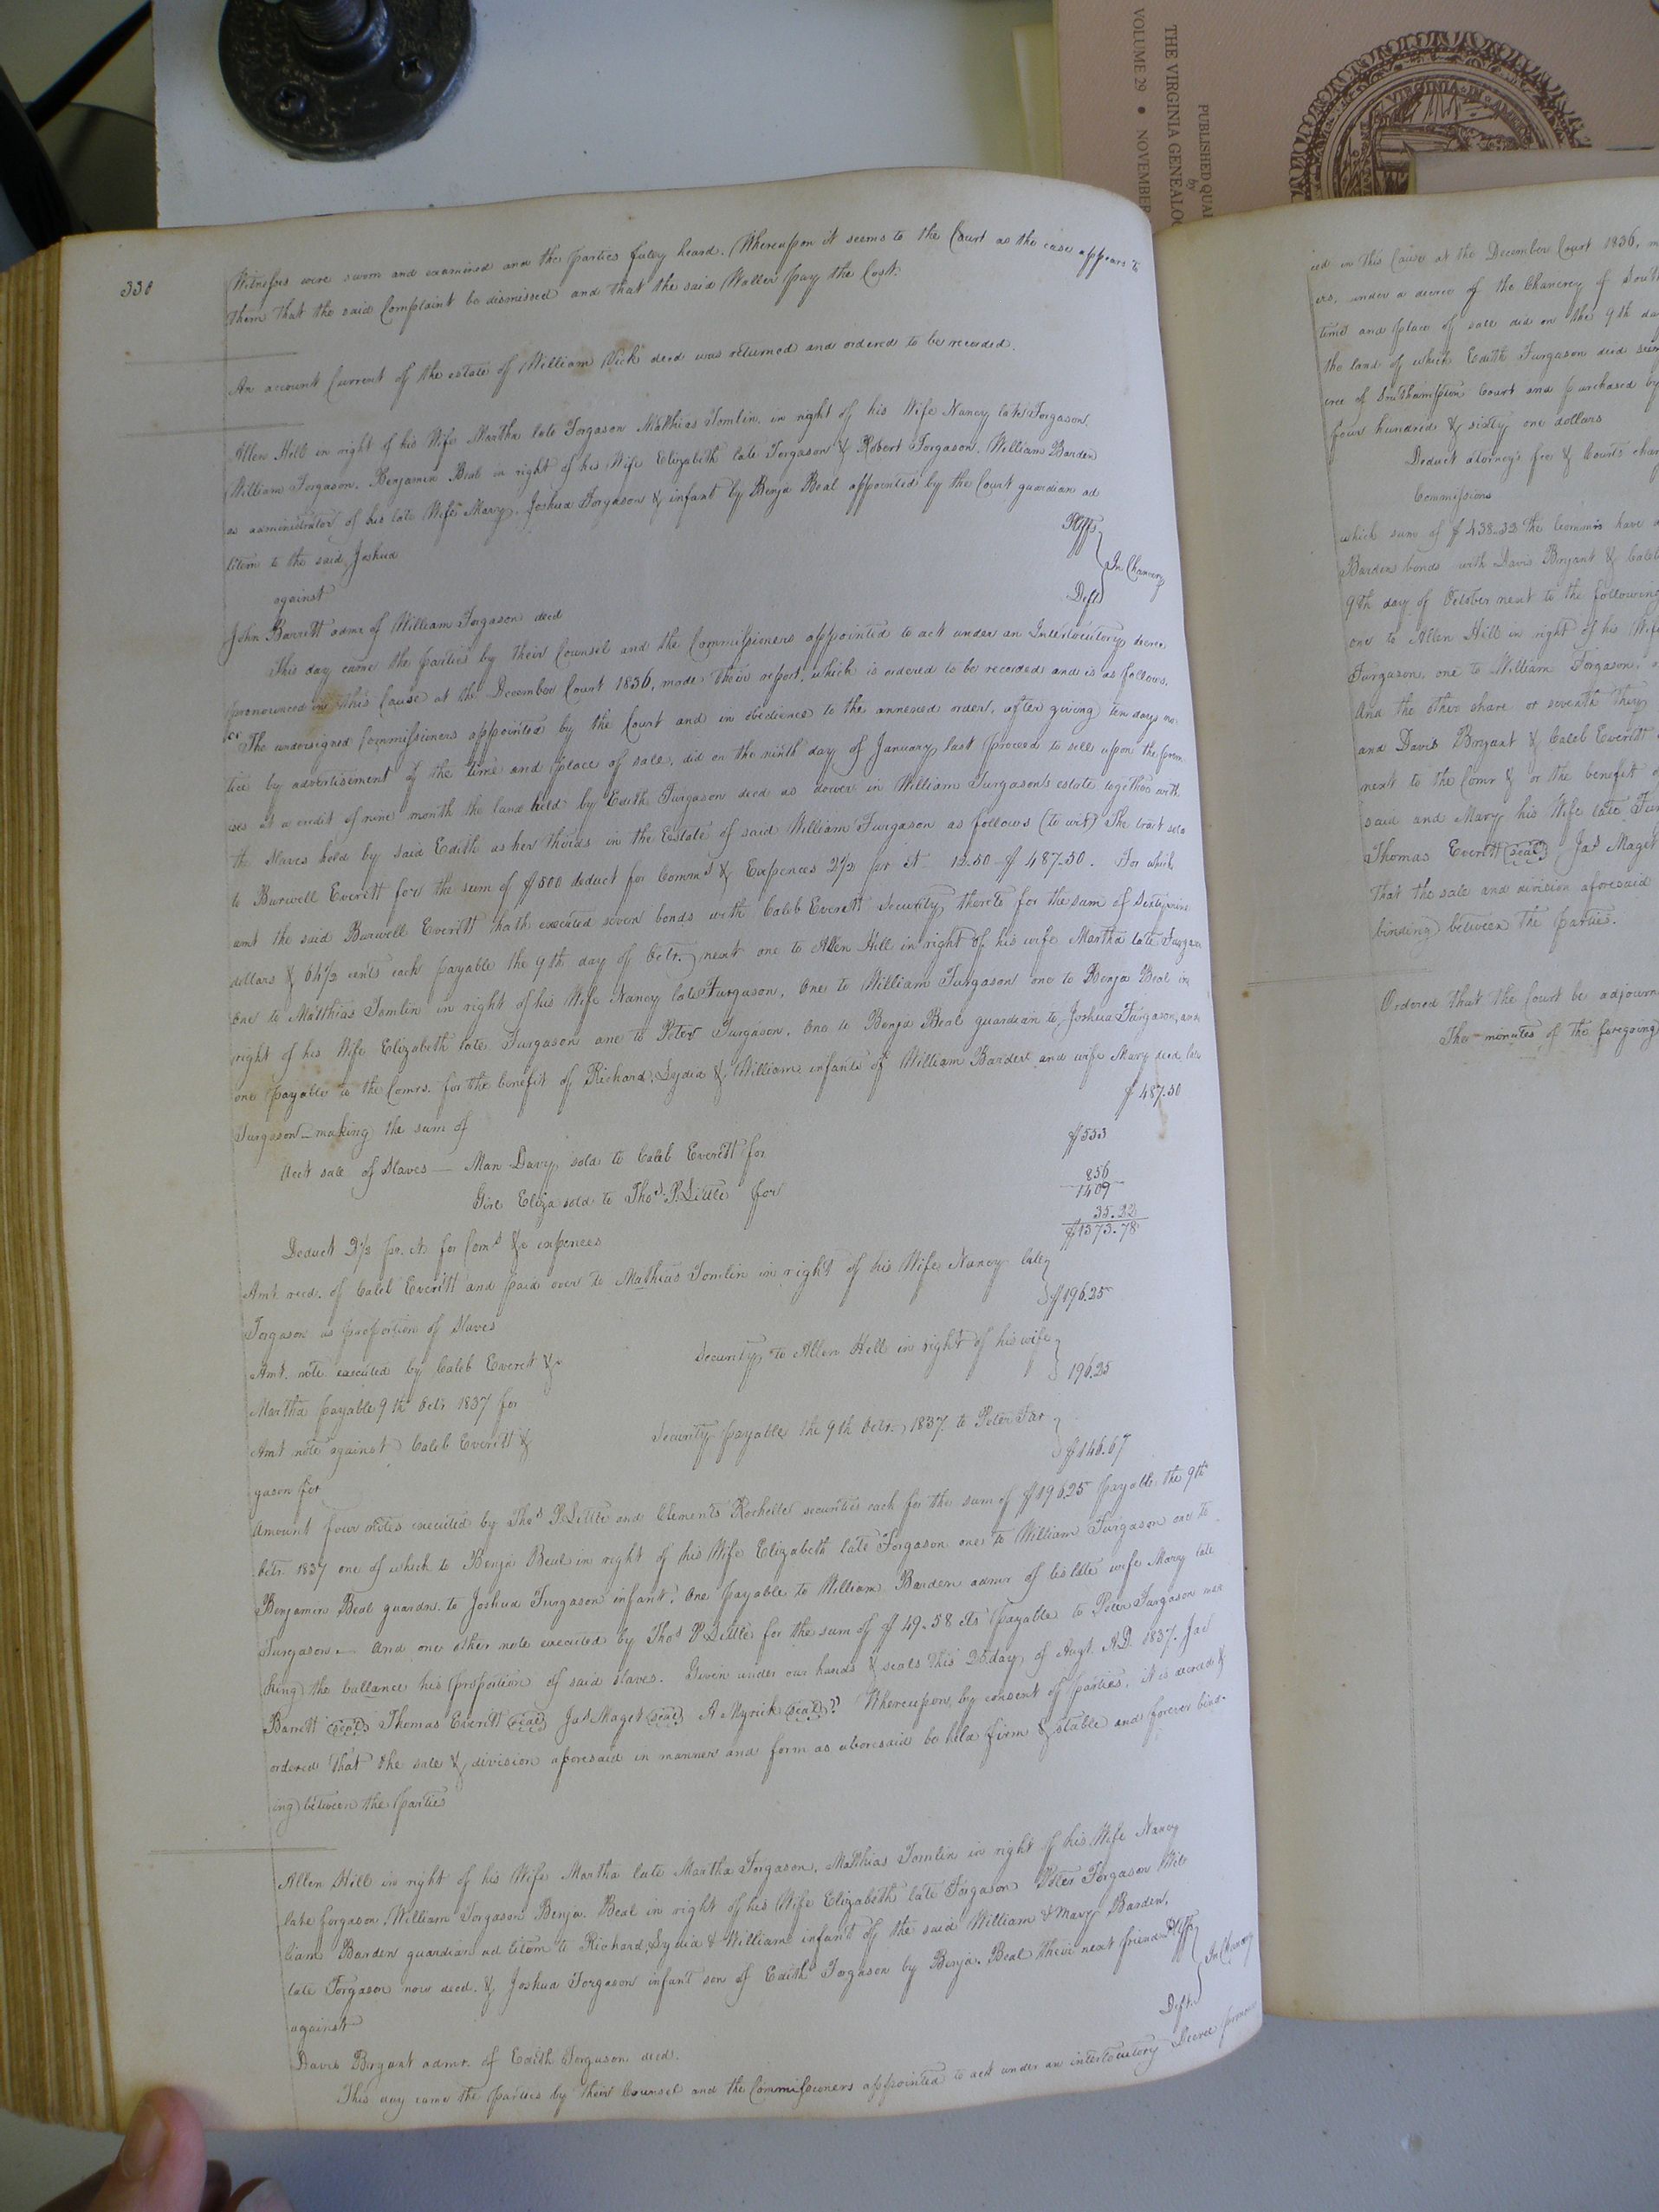 THE VIRGINIA GENEALO
VOLUME 29 • NOVEMBER
PUBLISHED QUA
by
VIRGINIA IN
338
Witnesses were sworn and examined and the parties fuley heard. Whereupon it seems to the Court as the case appears to
them that the said Complaint be dismissed and that the said Waller pay the Cost.
An account Current of the estate of William Vick decd was returned and ordered to be recorded.
Allen Hill in right of his Wife Martha late Forgason Matthias Tomlin, in right of his Wife Nancy late Forgason,
William Forgason, Benjamin Beal in right of his Wife Elizabeth late Forgason & Robert Forgason. William Barden
as administrator of his late Wife Mary. Joshua Forgason & infant by Benja Beal appointed by the Court guardian ad
litem to the said Joshua
Pltffs
against
In Chancery
Defts
John Barrett admr of William Forgason decd
This day came the parties by their Counsel and the Commissioners appointed to act under an Interlocutory decree
pronounced in this Cause at the December Court 1836, made their report, which is ordered to be recorded and is as follows,
"The undersigned Commissioners appointed by the Court and in obedience to the annexed order, after giving ten days no
tice by advertisement of the time and place of sale, did on the ninth day of January last proceed to sell upon the prem
ises at a credit of nine month the land held by Edith Furgason decd as dower in William Furgason's estate together with
th slaves held by said Edith as her thirds in the Estate of said William Furgason as follows (to wit) The tract sold
to Burwell Everitt for the sum of $500 deduct for Comms & Expences 2½ pr ct 12.50 - $487.50. For which
amt the said Burwell Everitt hath executed seven bonds with Caleb Everett security thereto for the sum of Sixty nine
dollars & 64½ cents each payable the 9th day of Octr. next one to Allen Hill in right of his wife Martha late Furgason
One to Matthias Tomlin in right of his Wife Nancy late Furguson, One to William Furgason one to Benja Beal in
right of his Wife Elizabeth late Furgason one to Peter Furgason. One to Benja Beal guardian to Joshua Furgason, and
one payable to the Comrs. for the benefit of Richard, Lydia & William infants of William Barden and wife Mary decd late
Furgason — making the sum of
$487.50
Acct sale of slaves — Man Davy sold to Caleb Everett for
$553
Girl Eliza sold to Thos. P. Little for
856
1409
Deduct 2½ pr. ct. for Coms & expences
35.22
$1373.78
Amt. recd. of Caleb Everitt and paid over to Mathias Tomlin in right of his Wife Nancy late
Forgason as proportion of slaves
$196.25
Amt. note executed by Caleb Everett & security to Allen Hill in right of his wife
Martha payable 9th Octr 1837 for
196.25
Amt note against Caleb Everitt & Security payable the 9th Octr. 1837 to Peter Fur
gason for
$146.67
Amount four notes executed by Thos P. Little and Clements Rochelle securities each for the sum of $196.25 payable the 9th
Octr. 1837 one of which to Benja Beal in right of his Wife Elizabeth late Forgason one to William Furgason one to
Benjamin Beal guardn. to Joshua Furgason infant, One payable to William Barden admr of his late wife Mary late
Furgason — And one other note executed by Thos P. Little for the sum of $49.58 cts payable to Peter Furgason ma
king the ballance his proportion of said slaves. Given under our hands & seals this 25 day of Augt. A.D. 1837. Jno
Barrett (seal) Thomas Everitt (seal) Jas Maget (seal) A Myrick (seal)" Whereupon, by consent of parties, it is decreed &
ordered that the sale & division aforesaid in manner and form as aforesaid be held firm & stable and forever bind-
ing between the parties
Allen Hill in right of his Wife Martha late Martha Forgason, Matthias Tomlin in right of his Wife Nancy
late forgason, William Forgason Benja. Beal in right of his Wife Elizabeth late Forgason Peter Forgason Wil
liam Barden guardian ad litem to Richard, Lydia & William infant of the said William & Mary Barden,
late Forgason now decd. & Joshua Forgason infant son of Edith Forgason by Benja. Beal their next friend Pltffs
against
In Chancery
Defts.
Davis Bryant admr. of Edith Forgason decd.
This day came the parties by their Counsel and the Commissioners appointed to act under an interlocutory Decree pronoun
ced in this Cause at the December Court 1836, m
ers, under a decree of the Chancery of South
time and place of sale did on the 9th da
the land of which Edith Furgason died sei
cree of Southampton Court and purchased by
four hundred & sixty one dollars
Deduct atorney's fee & Courts char
Commissions
which sum of $438.33 the Commrs have
Bardens bonds with Davis Bryant & Caleb
9th day of October next to the following
one to Allen Hill in right of his Wife
Furgason, one to William Forgason,
And the other share or seventh they
and Davis Bryant & Caleb Everitt
next to the Comr & or the benefit
said and Mary his Wife late Fur
Thomas Everitt (seal) Jas Maget
That the sale and division aforesaid
binding between the parties.
Ordered that the Court be adjourn
The minutes of the foregoing